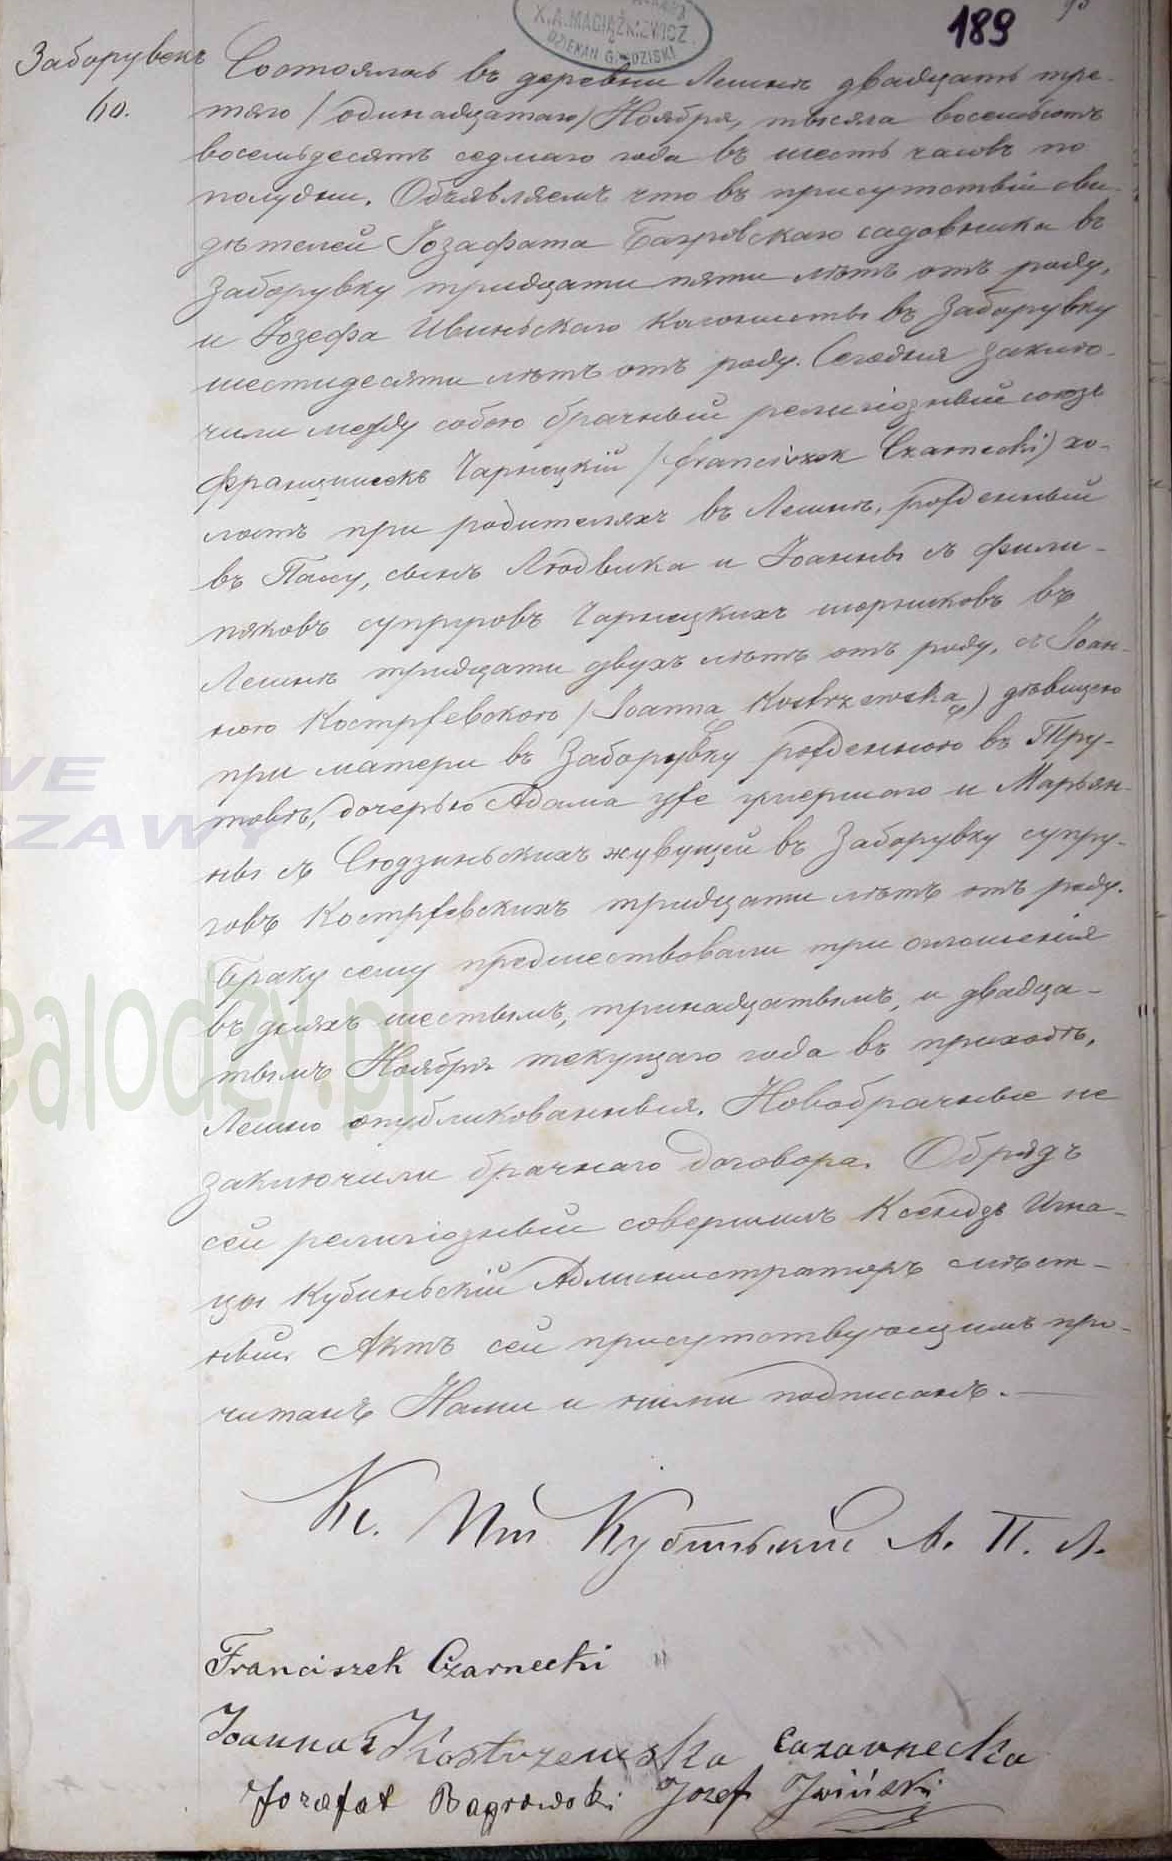 X.A.MACIĄŻKIEWICZ
DZIEKAN GRODZISKI
189
Заборувекъ
60.
Состоялось въ деревни Лешнѣ двадцать тре-
тяго / одинадцатаго / Ноября, тысяча восемьсотъ
восемьдесятъ седмаго года въ шесть часовъ по
полудни. Объявляемъ что въ присутствіи сви-
дѣтелей Іозафата Багровскаго садовника въ
Заборувку тридцати пяти лѣтъ отъ роду,
и Іозефа Ивиньскаго колонисты въ Заборувку
шестидесяти лѣтъ отъ роду. Сегодня заклю-
чили между собою брачный религіозный союзъ
Францишекъ Чарнецкій / Franciszek Czarnecki) хо-
лостъ при родителяхъ въ Лешнѣ, рожденный
въ Пассу, сынъ Людвика и Іоанны съ Фили-
пяковъ супруговъ Чарнецкихъ шорниковъ въ
Лешнѣ тридцати двухъ лѣтъ отъ роду, съ Іоан-
ною Костржевскою / Joanna Kostrzewska) дѣвицею
при матери въ Заборувку рожденною въ Тру-
товѣ, дочерью Адама уже умершаго и Марьян-
ны съ Сюдзиньскихъ жувущей въ Заборувку супру-
говъ Костржевскихъ тридцати лѣтъ отъ роду.
Браку сему предшествовали три оглошенія
въ дняхъ шестымъ, тринадцатымъ, и двадца-
тымъ Ноября текущаго года въ приходѣ,
Лешно опубликованныя. Новобрачные не
заключили брачнаго договора. Обрядъ
сей религіозный совершилъ Ксендзъ Игна-
цы Кубиньскій Администраторъ мѣст-
ный. Актъ сей присутствующимъ про-
читанъ Нами и ними подписанъ.—
Кс. Игн Кубиньскій А. П. Л.
Franciszek Czarnecki
Joanna z Kostrzewska Czarnecka
Jozafat Bagrowski Jozef Iwiński
VE
CZAWY
ealodzy.pl